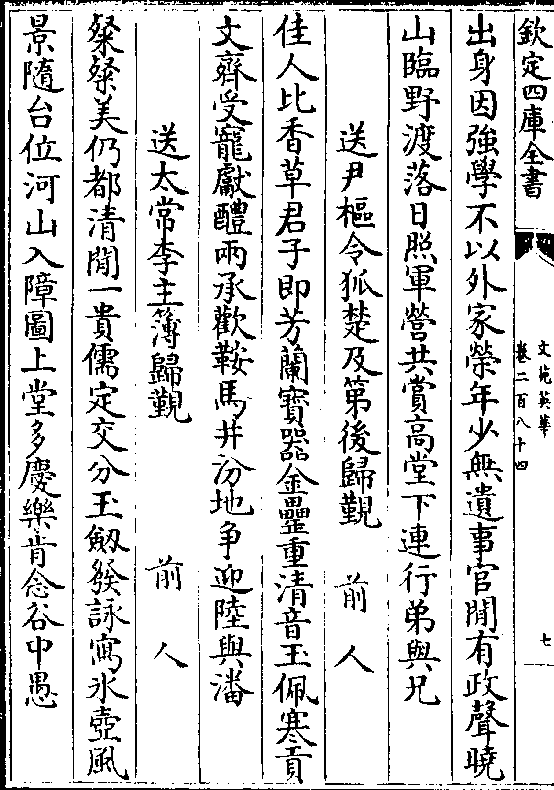 欽定四庫全書
文苑英華
卷二百八十四
七
出身因強學不以外家榮年少無遺事官閒有政聲曉
山臨野渡落日照軍營共賞高堂下連行弟與兄
送尹樞令狐楚及第後歸覲 前人
佳人比香草君子即芳蘭寶器金罍重清音玉佩寒貢
文齊受寵獻醴兩承歡鞍馬并汾地争迎陸與潘
送太常李主簿歸覲 前人
粲粲美仍都清閒一貴儒定交分玉劔發詠寫氷壺風
景隨台位河山入障圖上堂多慶樂肯念谷中愚